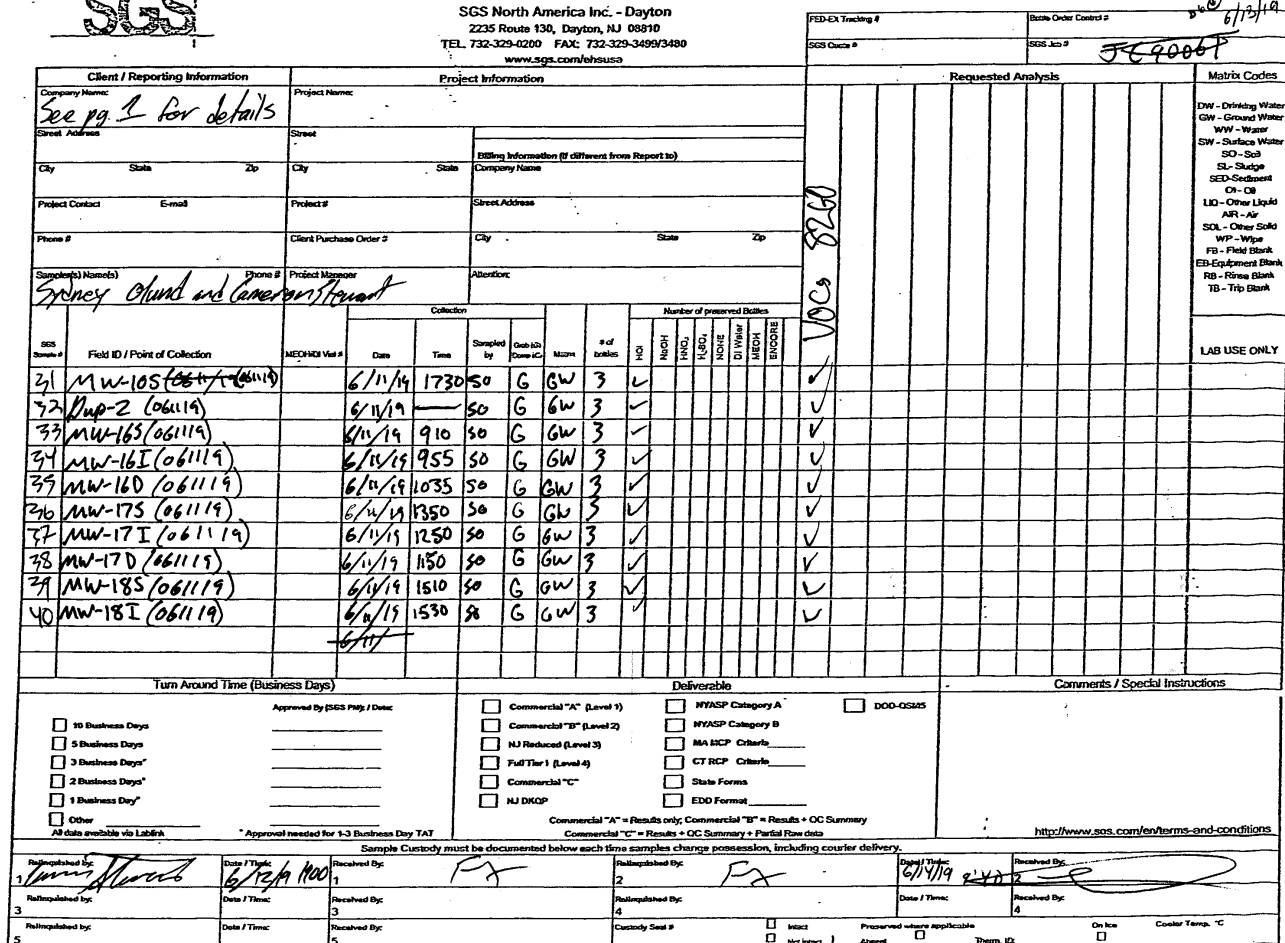 SGS
SGS North America Inc. - Dayton
2235 Route 130, Dayton, NJ 08810
TEL. 732-329-0200 FAX: 732-329-3499/3480
www.sgs.com/ehsusa
FED-EX Tracking #
Bottle Order Control #
6/13/19
SGS Quote #
SGS Job #
Client / Reporting Information
Project Information
Requested Analysis
Matrix Codes
Company Name:
See pg. 1 for details
Project Name:
Street Address
Street
Billing Information (If different from Report to)
City State Zip
City State
Company Name
Project Contact E-mail
Project #
Street Address
Phone #
Client Purchase Order #
City State Zip
Sampler(s) Name(s) Phone #
Sydney Olund and Cameron Stewart
Project Manager
Attention:
VOCs 8260
DW - Drinking Water
GW - Ground Water
WW - Water
SW - Surface Water
SO - Soil
SL- Sludge
SED-Sediment
OI - Oil
LIQ - Other Liquid
AIR - Air
SOL - Other Solid
WP - Wipe
FB - Field Blank
EB-Equipment Blank
RB - Rinse Blank
TB - Trip Blank
LAB USE ONLY
Collection
Number of preserved Bottles
SGS Sample #
Field ID / Point of Collection
MEOH/DI Vial #
Date
Time
Sampled by
Grab (G) Comp (C)
Matrix
# of bottles
HCl
NaOH
HNO3
H2SO4
NONE
DI Water
MEOH
ENCORE
31 MW-10S (061119) 6/11/19 1730 SO G GW 3 ✓ ✓
32 Dup-2 (061119) 6/11/19 — SO G GW 3 ✓ ✓
33 MW-16S (061119) 6/11/19 910 SO G GW 3 ✓ ✓
34 MW-16I (061119) 6/11/19 955 SO G GW 3 ✓ ✓
35 MW-16D (061119) 6/11/19 1035 SO G GW 3 ✓ ✓
36 MW-17S (061119) 6/11/19 1350 SO G GW 3 ✓ ✓
37 MW-17I (061119) 6/11/19 1250 SO G GW 3 ✓ ✓
38 MW-17D (061119) 6/11/19 1150 SO G GW 3 ✓ ✓
39 MW-18S (061119) 6/11/19 1510 SO G GW 3 ✓ ✓
40 MW-18I (061119) 6/11/19 1530 SO G GW 3 ✓ ✓
6/11/
Turn Around Time (Business Days)
Deliverable
Comments / Special Instructions
Approved By (SGS PM): / Date:
10 Business Days
5 Business Days
3 Business Days*
2 Business Days*
1 Business Day*
Other
All data available via Lablink
* Approval needed for 1-3 Business Day TAT
Commercial "A" (Level 1)
Commercial "B" (Level 2)
NJ Reduced (Level 3)
Full Tier I (Level 4)
Commercial "C"
NJ DKQP
NYASP Category A
NYASP Category B
MA MCP Criteria
CT RCP Criteria
State Forms
EDD Format
DOD-QSM5
Commercial "A" = Results only; Commercial "B" = Results + QC Summary
Commercial "C" = Results + QC Summary + Partial Raw data
http://www.sgs.com/en/terms-and-conditions
Sample Custody must be documented below each time samples change possession, including courier delivery.
Relinquished by: 1
Date / Time: 6/12/19 1700
Received By: 1 FX
Relinquished By: 2 FX
Date / Time: 6/14/19
Received By: 2
Relinquished by: 3
Date / Time:
Received By: 3
Relinquished By: 4
Date / Time:
Received By: 4
Relinquished by: 5
Date / Time:
Received By: 5
Custody Seal #
Intact
Not intact
Preserved where applicable
Absent
Therm. ID:
On Ice
Cooler Temp. °C